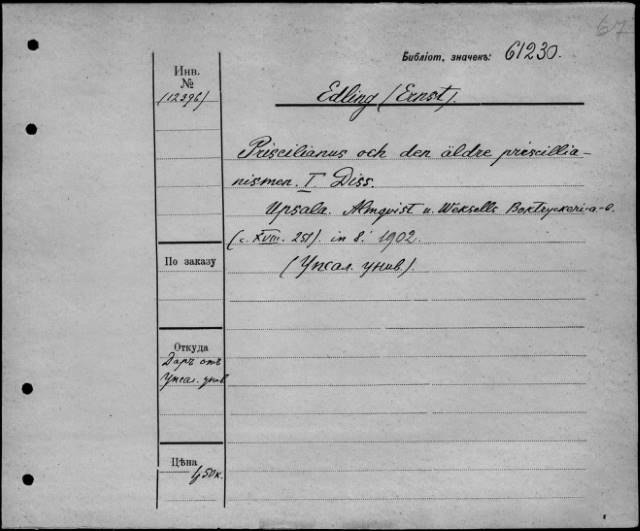 67
Библіот, значекъ: 61230.
Инв.
№
(12396)
Edling (Ernst).
Priscilianus och den äldre priscillia-
nismen. I. Diss.
Upsala. Almqvist u. Weksells Boktryckeri-a-b.
(c. XVIII. 251). in 8. 1902.
(Упсал. унив.).
По заказу
Откуда
Даръ отъ
Упсал. унив
Цѣна
50к.